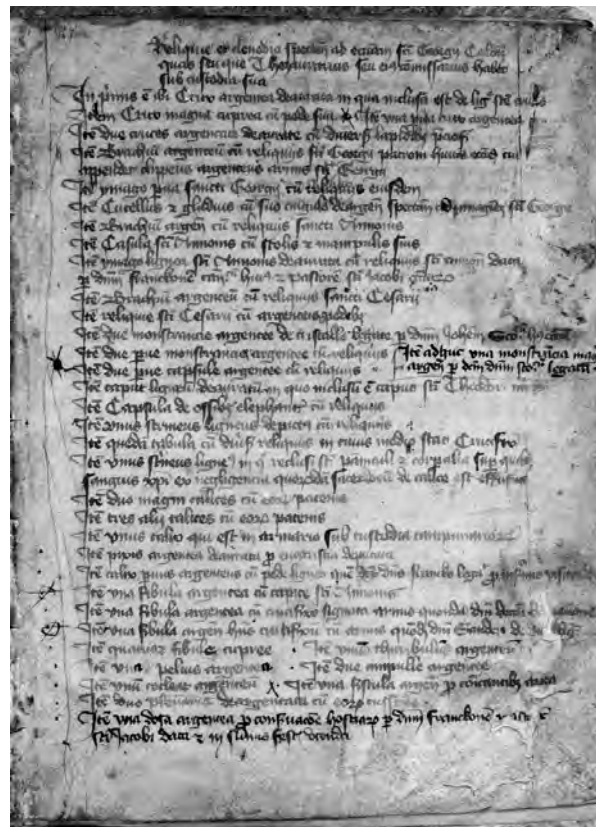 Reliquie et clenodia spectan ad eccam scti Georgii Colon
quas seu que Thezaurarius seu eius commissarius habet
sub custodia sua
In primis e ibi Crux argentea deaurata in qua inclusu est de lig ste crucis
Item Crux magna cuprea cu pede suo Ite una pua crux argentea
Ite due cruces argentee deaurate cu diversis lapidibus
Ite Brachiu argenteu cu reliquiis sti Georgii patroni huius ecce cui
appendet clipeus argenteus armis sti Georgii
Ite ymago pua sancti Georgii cu reliquiis eiusdem
Ite Cutellus et gladius cu suo cingulo deargen spectan ad ymagine sti Georgii
Ite Brachiu argen cu reliquiis sancti Annonis
Ite Casula sti Annonis cu stolis et manipulis suis
Ite ymago lignea sti Annonis deaurata cu reliquiis sti Annon data
p dnm franckone can hui et pastore sti Jacobi
Ite Brachiu argenteu cu reliquiis sancti Cesarii
Ite reliquie sti Cesarii cu argenteis pedibus
Ite due monstrancie argentee de cristallo p dnm Johem
Ite due pue monstrancie argentee cu reliquiis Ite adhuc una monstrancia
Ite due pue capsule argentee cu reliquiis argen p dnm
Ite caput ligneu deauratu in quo inclusu e caput sti Theodori
Ite Capsula de ossibus elephantis cu reliquiis
Ite unus scrineus ligneus depictus cu reliquiis
Ite queda tabula cu divsis reliquiis in cuius medio stat Crucifixus
Ite unus scrineus ligne in q reclusi st panniculi et corporalia sup quibus
sanguis xpi ex negligencia quorunda sacerdotu de calice est effusus
Ite duo magni calices cu eorum patenis
Ite tres alii calices cu eorum patenis
Ite unus calix qui est in armario sub custodia campanariorum
Ite pixis argentea deaurata p eucaristia deputata
Ite calix puus argenteus cu pede ligneo que p infirmis visitandis
Ite una fibula argentea cu capite sti Annonis
Ite una fibula argentea cu crucifixo signata armis quonda dni
Ite una fibula argen hns crucifixu cu armis quonda dni
Ite quatuor fibule cupree Ite unu thuribulu argenteu
Ite una pelvis argentea Ite due ampulle argentee
Ite unu coclear argenteu Ite una fistula argen p comunicantibus
Ite duo plenaria deargentata cu eorum
Ite una dosa argentea p conservacoe hostiarum p dnm franckone
sti Jacobi data et in summis festis